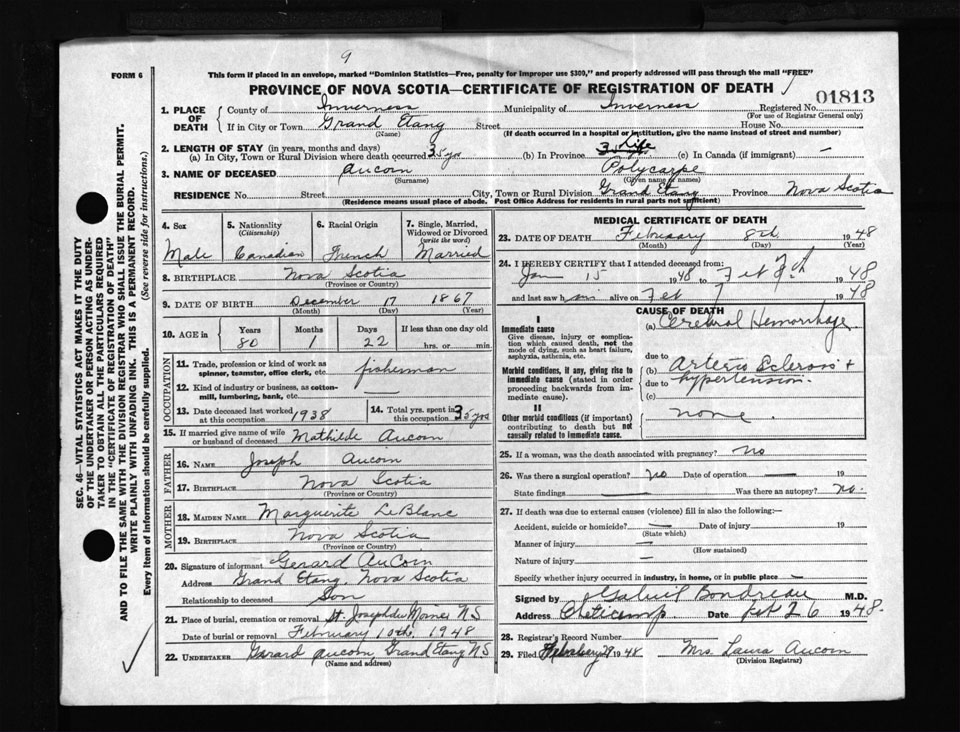 9
FORM 6
This form if placed in an envelope, marked "Dominion Statistics—Free, penalty for improper use $300," and properly addressed will pass through the mail "FREE"
PROVINCE OF NOVA SCOTIA—CERTIFICATE OF REGISTRATION OF DEATH
01813
1. PLACE OF DEATH County of Inverness Municipality of Inverness Registered No.
(For use of Registrar General only)
If in City or Town Grand Etang Street House No.
(Name) (If death occurred in a hospital or institution, give the name instead of street and number)
2. LENGTH OF STAY (in years, months and days)
(a) In City, Town or Rural Division where death occurred 35 yrs (b) In Province 35 Life (c) In Canada (if immigrant) —
3. NAME OF DECEASED Aucoin Polycarpe
(Surname) (Given name or names)
RESIDENCE No. Street City, Town or Rural Division Grand Etang Province Nova Scotia
(Residence means usual place of abode. Post Office Address for residents in rural parts not sufficient)
4. Sex Male
5. Nationality (Citizenship) Canadian
6. Racial Origin French
7. Single, Married, Widowed or Divorced (write the word) Married
8. BIRTHPLACE Nova Scotia
(Province or Country)
9. DATE OF BIRTH December 17 1867
(Month) (Day) (Year)
10. AGE in Years 80 Months 1 Days 22 If less than one day old hrs. or min.
OCCUPATION
11. Trade, profession or kind of work as spinner, teamster, office clerk, etc. fisherman
12. Kind of industry or business, as cotton-mill, lumbering, bank, etc.
13. Date deceased last worked at this occupation 1938
14. Total yrs. spent in this occupation 35 yrs
15. If married give name of wife or husband of deceased Mathilde Aucoin
FATHER
16. NAME Joseph Aucoin
17. BIRTHPLACE Nova Scotia
(Province or Country)
MOTHER
18. MAIDEN NAME Marguerite LeBlanc
19. BIRTHPLACE Nova Scotia
(Province or Country)
20. Signature of informant Gerard AuCoin
Address Grand Etang Nova Scotia
Relationship to deceased Son
21. Place of burial, cremation or removal St. Joseph du Moine N S
Date of burial or removal February 10th, 1948
22. UNDERTAKER Gerard Aucoin Grand Etang N.S
(Name and address)
MEDICAL CERTIFICATE OF DEATH
23. DATE OF DEATH February 8th 1948
(Month) (Day) (Year)
24. I HEREBY CERTIFY that I attended deceased from:
Jan 15 1948 to Feb 1948
and last saw him alive on Feb 7 1948
CAUSE OF DEATH
I
Immediate cause
Give disease, injury or complication which caused death, not the mode of dying, such as heart failure, asphyxia, asthenia, etc.
(a) Cerebral Hemorrhage
due to
Morbid conditions, if any, giving rise to immediate cause (stated in order proceeding backwards from immediate cause).
(b) Arterio Sclerosis +
due to hypertension.
(c)
II
Other morbid conditions (if important) contributing to death but not causally related to immediate cause.
none.
25. If a woman, was the death associated with pregnancy? no
26. Was there a surgical operation? no Date of operation — 19
State findings — Was there an autopsy? no.
27. If death was due to external causes (violence) fill in also the following:—
Accident, suicide or homicide? — Date of injury 19
(State which)
Manner of injury —
(How sustained)
Nature of injury —
Specify whether injury occurred in industry, in home, or in public place —
Signed by Gabriel Boudreau M.D.
Address Cheticamp Date Feb 26 1948.
28. Registrar's Record Number
29. Filed February 29 1948 Mrs. Laura Aucoin
(Division Registrar)
SEC. 46—VITAL STATISTICS ACT MAKES IT THE DUTY
OF THE UNDERTAKER OR PERSON ACTING AS UNDER-
TAKER TO OBTAIN ALL THE PARTICULARS REQUIRED
IN THE "CERTIFICATE OF REGISTRATION OF DEATH"
AND TO FILE THE SAME WITH THE DIVISION REGISTRAR WHO SHALL ISSUE THE BURIAL PERMIT.
WRITE PLAINLY WITH UNFADING INK. THIS IS A PERMANENT RECORD.
Every item of information should be carefully supplied. (See reverse side for instructions.)